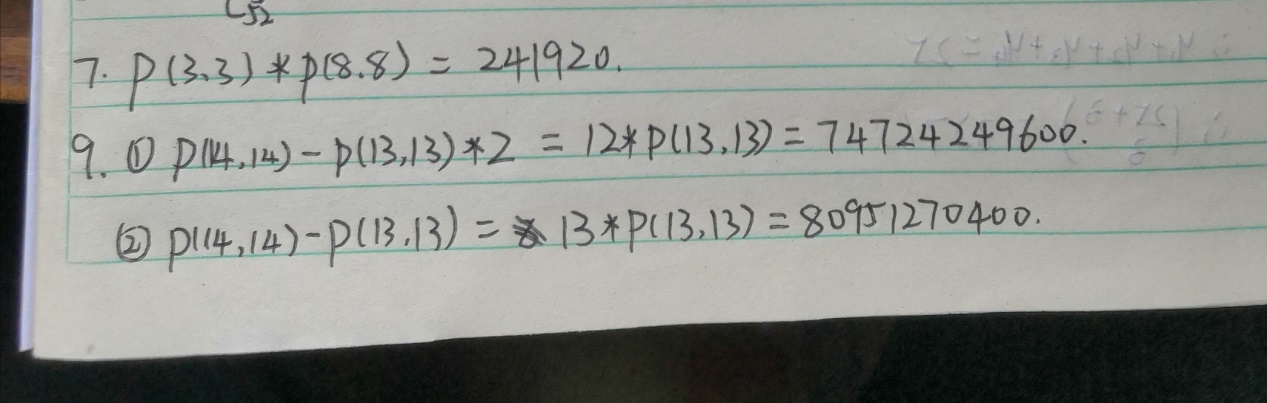 C52
7. P(3,3)*P(8.8) = 241920.
9. ① P(14,14)-P(13,13)*2 = 12*P(13,13) = 74724249600.
② P(14,14)-P(13,13) = 13*P(13,13) = 80951270400.